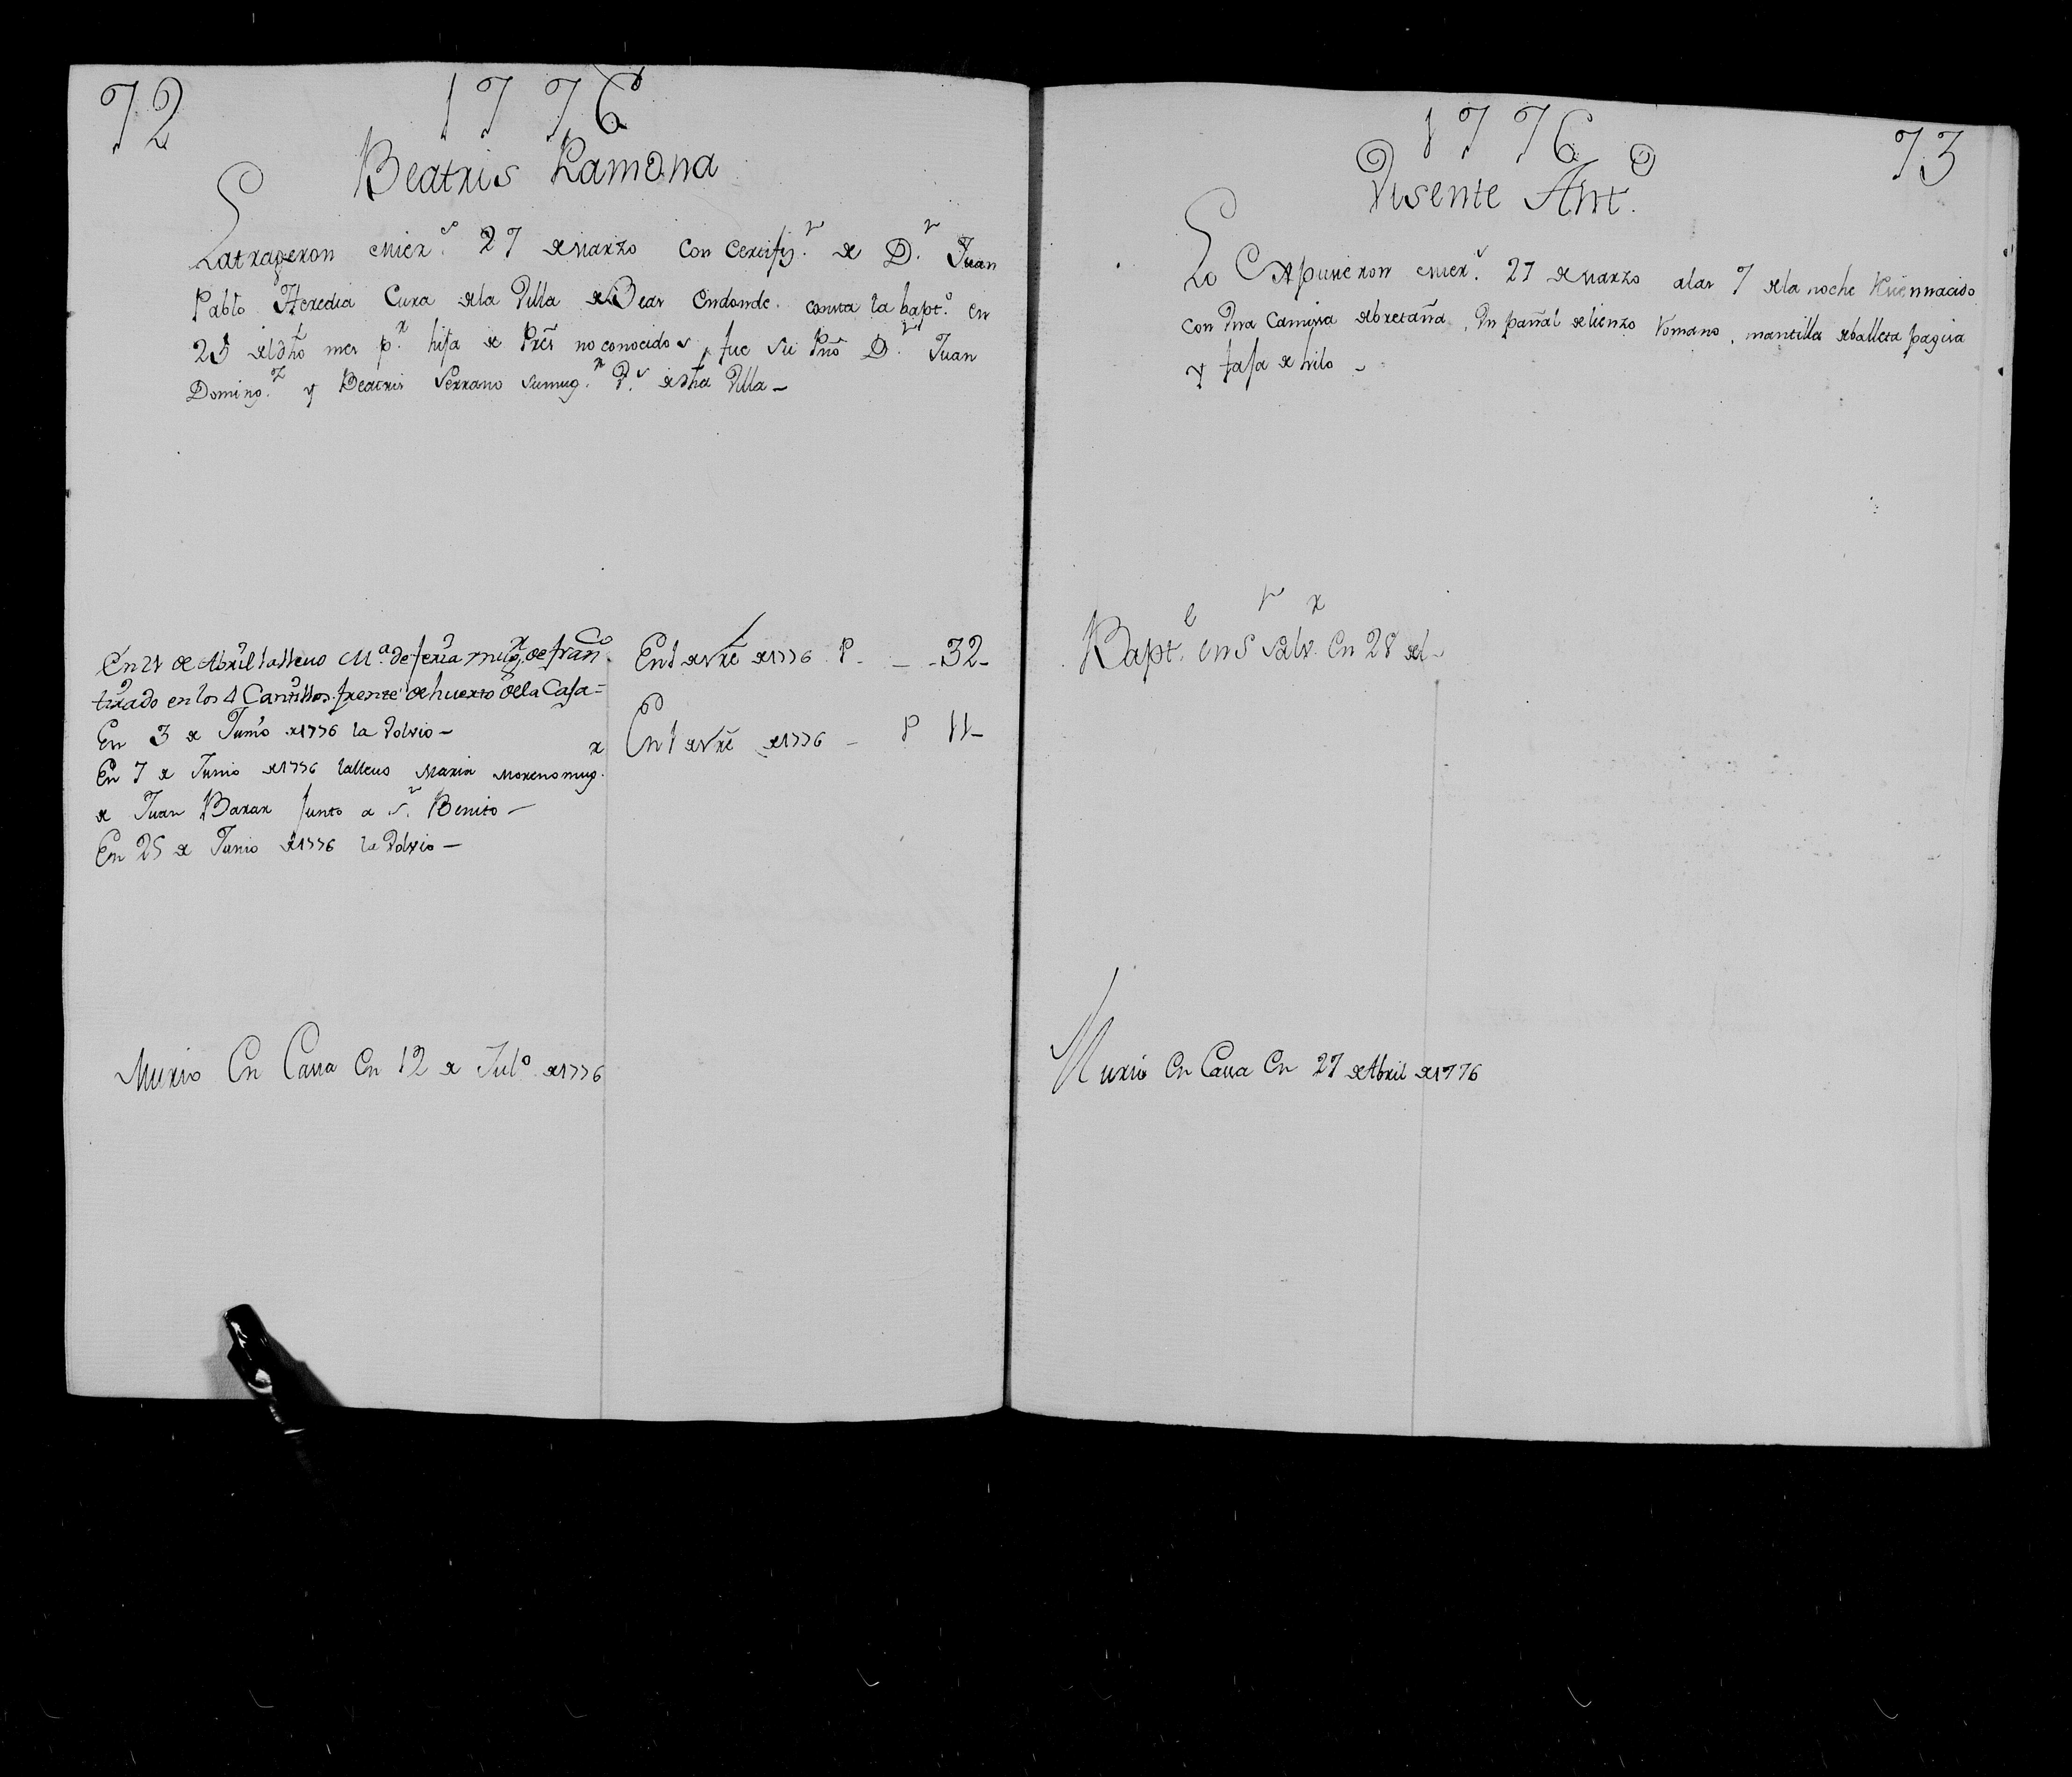 72
1776
Beatris Ramona
La trageron mier.s 27 de Marzo con Certifi.n de D.n Juan
Pablo Heredia Cura de la Villa de Beas endonde consta la bapt.o en
25 del dho mes p.r hija de Pres no conocidos, fue su Pno D.n Juan
Doming.z y Beatris Serrano su mug.r V.s de dha Villa—
En 21 de Abril la lleuo M.a de feria mug.r de fran.co
tirado en los 4 Cantillos frente de huerto de la Casa=
En 3 de Junio de 1776 la Volvio—
En 7 de Junio de 1776 la lleuo Maria Moreno mug.r
de Juan Baras Junto a S.n Benito—
En 25 de Junio de 1776 la Volvio—
En 1 de Vre de 1776 P. — 32—
En 1 de Vre de 1776 — P 11—
Murio En Cassa En 12 de Jul.o de 1776
1776
73
Visente Ant.o
Lo Expusieron mier.s 27 de Marzo a las 7 de la noche Rezien nacido
con Vna Camissa de bretaña, Vn pañal de lienzo Romano, mantilla de balleta pagisa
y faja de hilo—
Bapt.e en S.n Salv.r en 28 del—
Murio En Cassa En 27 de Abril de 1776